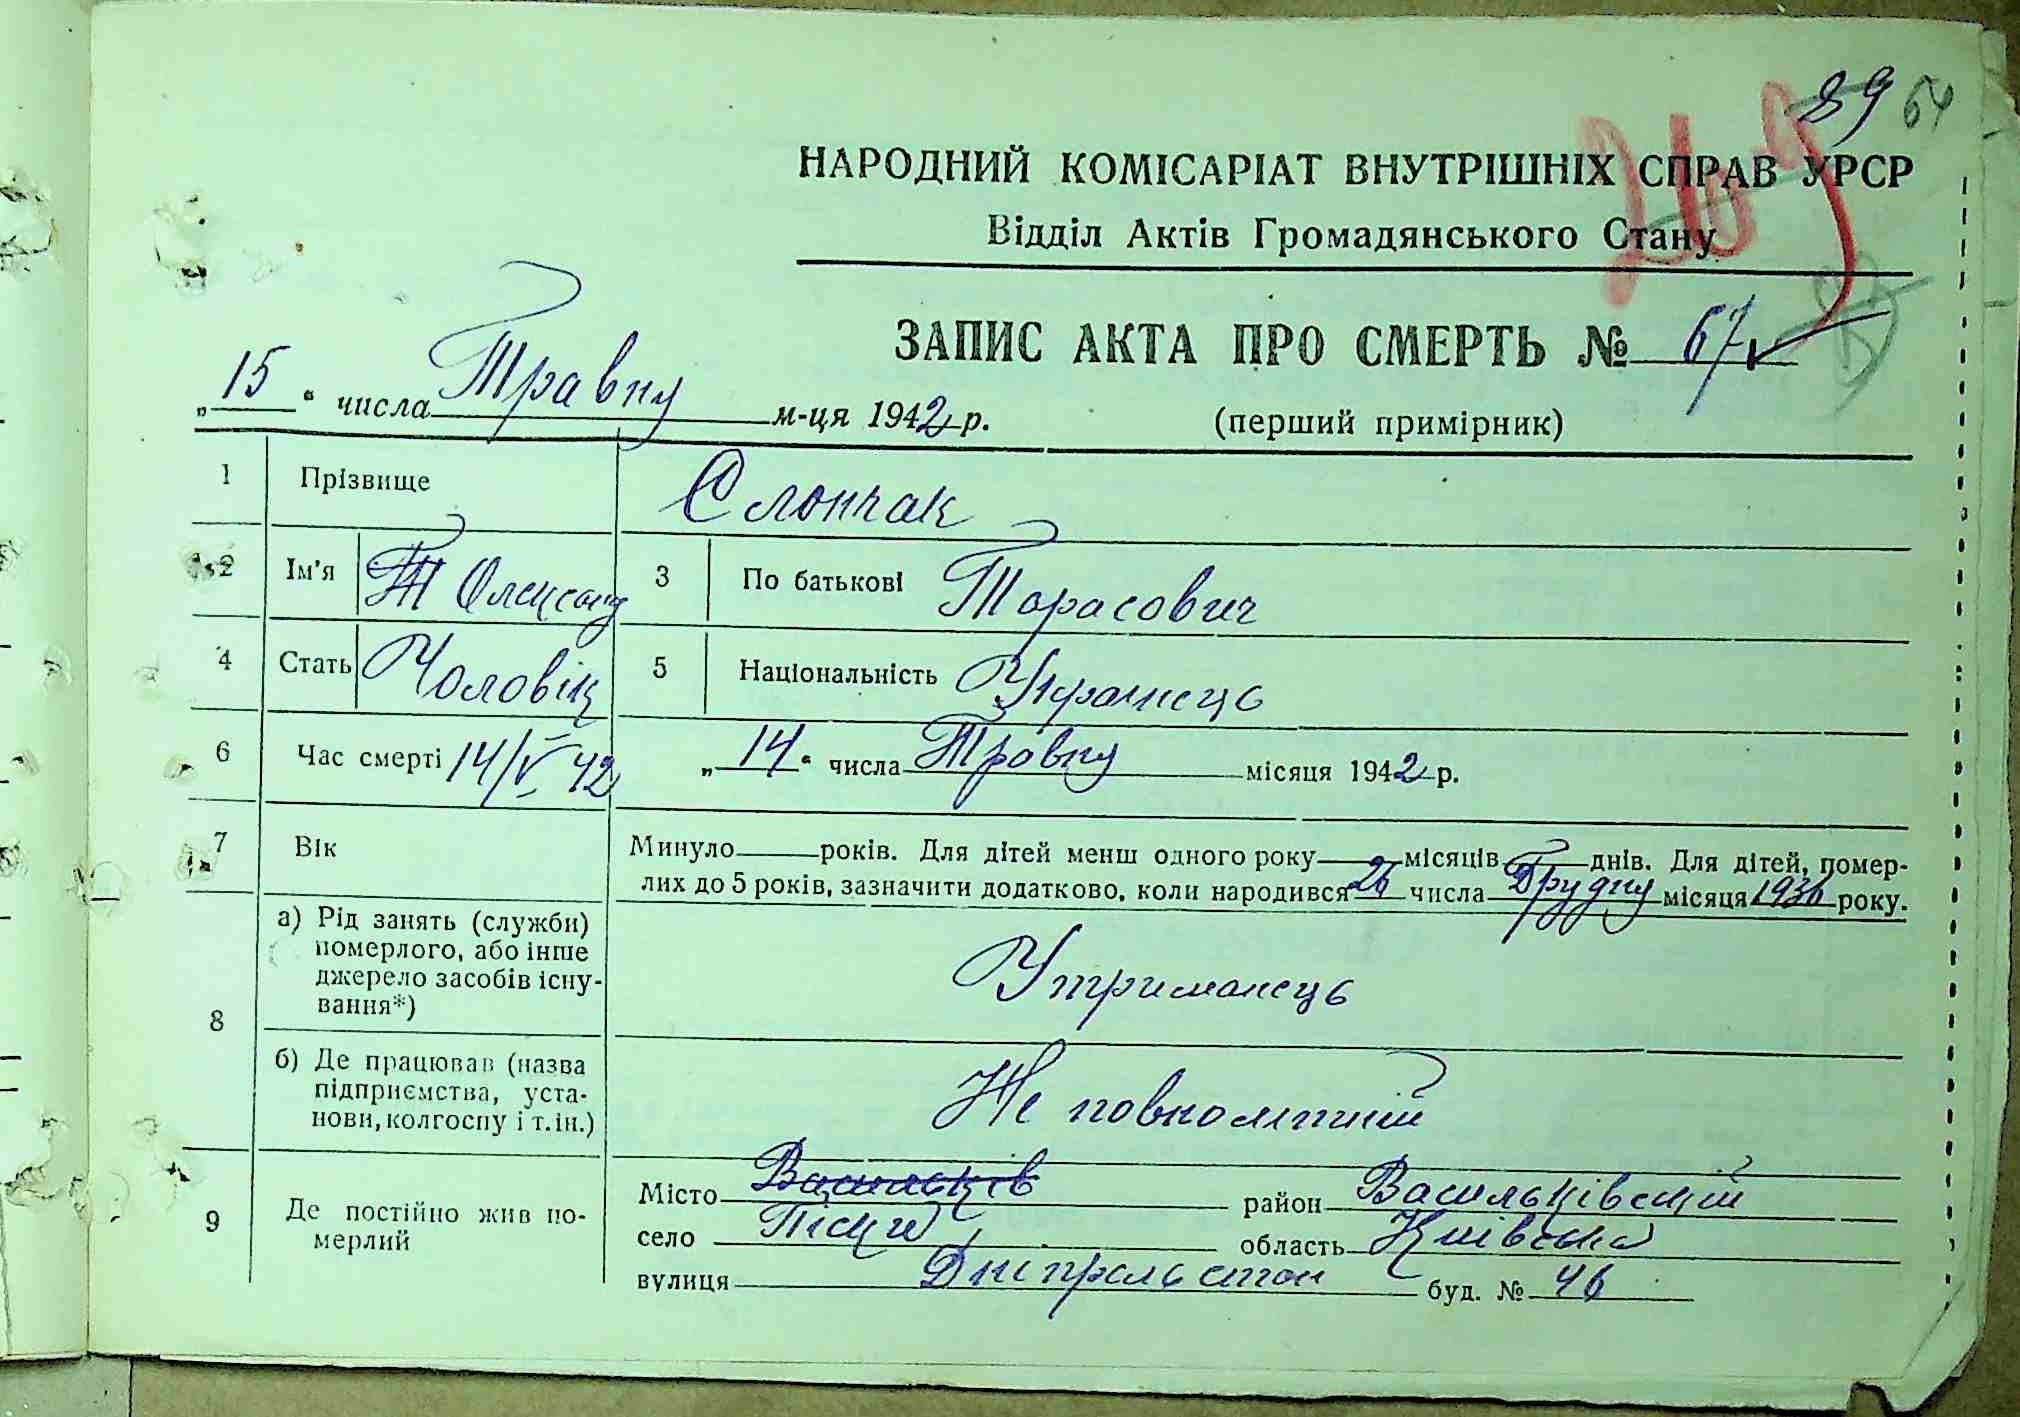 89 64
263
НАРОДНИЙ КОМІСАРІАТ ВНУТРІШНІХ СПРАВ УРСР
Відділ Актів Громадянського Стану
ЗАПИС АКТА ПРО СМЕРТЬ № 67
„15“ числа Травня м-ця 1942 р. (перший примірник)
1 Прізвище Слончак
2 Ім'я Олександ 3 По батькові Тарасович
4 Стать Чоловік 5 Національність Українець
6 Час смерті 14/V 42 „14“ числа Травня місяця 1942 р.
7 Вік Минуло років. Для дітей менш одного року місяців днів. Для дітей, помер-
лих до 5 років, зазначити додатково, коли народився 26 числа Грудня місяця 1936 року.
8 а) Рід занять (служби)
померлого, або інше
джерело засобів існу-
вання*) Утриманець
б) Де працював (назва
підприємства, уста-
нови, колгоспу і т. ін.) Не повнолітній
9 Де постійно жив по-
мерлий
Місто Васильків район Васильківський
село Піски, область Київська
вулиця буд. № 46